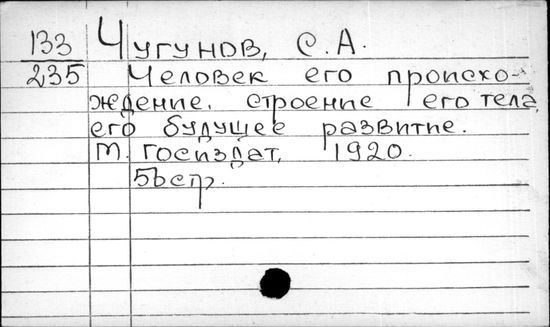 133 Чугунов, С. А.
235 Человек его происхо-
ждение. строение его тела,
его будущее развитие.
М. Госиздат, 1920.
56 стр.